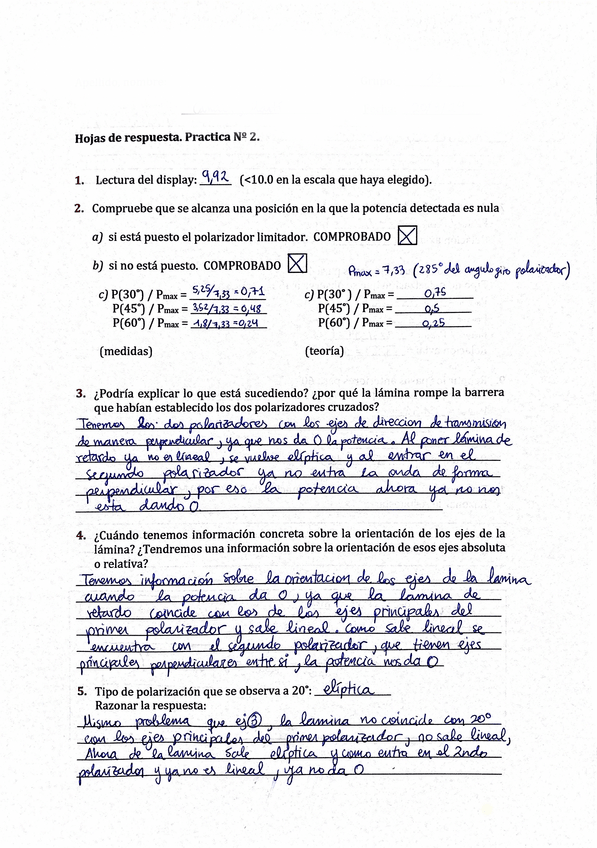 Hojas de respuesta. Practica Nº 2.
1. Lectura del display: 9,92 (<10.0 en la escala que haya elegido).
2. Compruebe que se alcanza una posición en la que la potencia detectada es nula
a) si está puesto el polarizador limitador. COMPROBADO X
b) si no está puesto. COMPROBADO X
Pmax = 7,33 (285° del angulo giro polarizador)
c) P(30°) / Pmax = 5,25/7,33 = 0,71
P(45°) / Pmax = 3,52/7,33 = 0,48
P(60°) / Pmax = 1,8/7,33 = 0,24
(medidas)
c) P(30°) / Pmax = 0,75
P(45°) / Pmax = 0,5
P(60°) / Pmax = 0,25
(teoría)
3. ¿Podría explicar lo que está sucediendo? ¿por qué la lámina rompe la barrera
que habían establecido los dos polarizadores cruzados?
Tenemos los dos polarizadores con los ejes de direccion de transmision
de manera perpendicular, ya que nos da 0 la potencia. Al poner lámina de
retardo ya no es lineal, se vuelve elíptica y al entrar en el
segundo polarizador ya no entra la onda de forma
perpendicular, por eso la potencia ahora ya no nos
esta dando 0.
4. ¿Cuándo tenemos información concreta sobre la orientación de los ejes de la
lámina? ¿Tendremos una información sobre la orientación de esos ejes absoluta
o relativa?
Tenemos información sobre la orientacion de los ejes de la lamina
cuando la potencia da 0, ya que la lamina de
retardo coincide con los de los ejes principales del
primer polarizador y sale lineal. como sale lineal se
encuentra con el segundo polarizador, que tienen ejes
principales perpendiculares entre si, la potencia nos da 0
5. Tipo de polarización que se observa a 20°: elíptica
Razonar la respuesta:
Mismo problema que ej③, la lamina no coincide con 20°
con los ejes principales del primer polarizador, no sale lineal,
Ahora de la lamina sale elíptica y como entra en el 2ndo
polarizador y ya no es lineal, ya no da 0